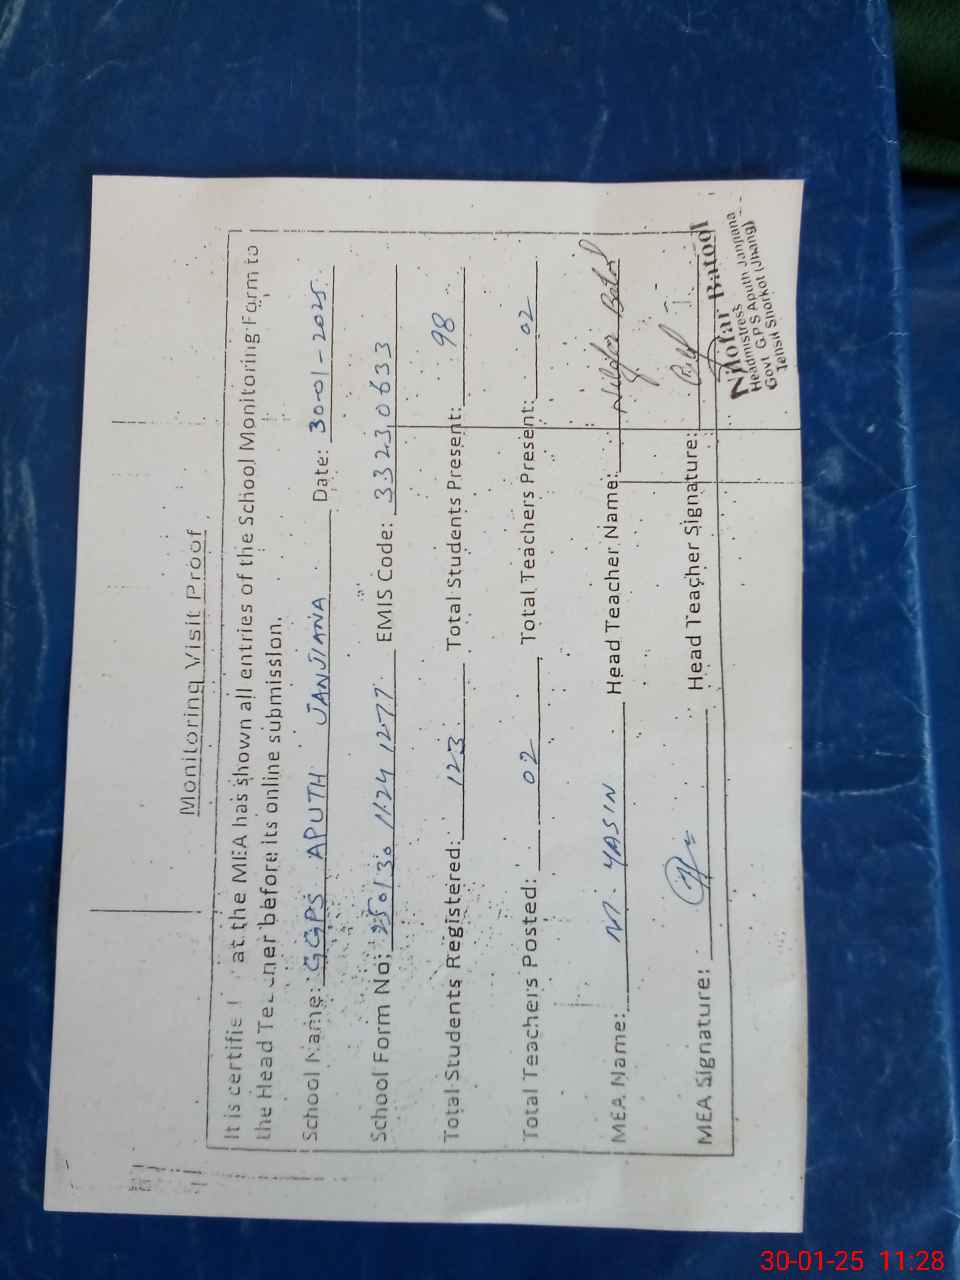 Monitoring Visit Proof
It is certifie at the MEA has shown all entries of the School Monitoring Form to
the Head Teacher before its online submission.
School Name: GGPS APUTH JANJIANA Date: 30-01-2025
School Form No: 250130 1124 1277 EMIS Code: 33230633
Total Students Registered: 123 Total Students Present: 98
Total Teachers Posted: 02 Total Teachers Present: 02
MEA Name: M. YASIN Head Teacher Name: Nilofar Batool
MEA Signature: Head Teacher Signature:
Nilofar Batool
Headmistress
Govt G.P.S Aputh Janjiana
Tehsil Shorkot (Jhang)
30-01-25 11:28